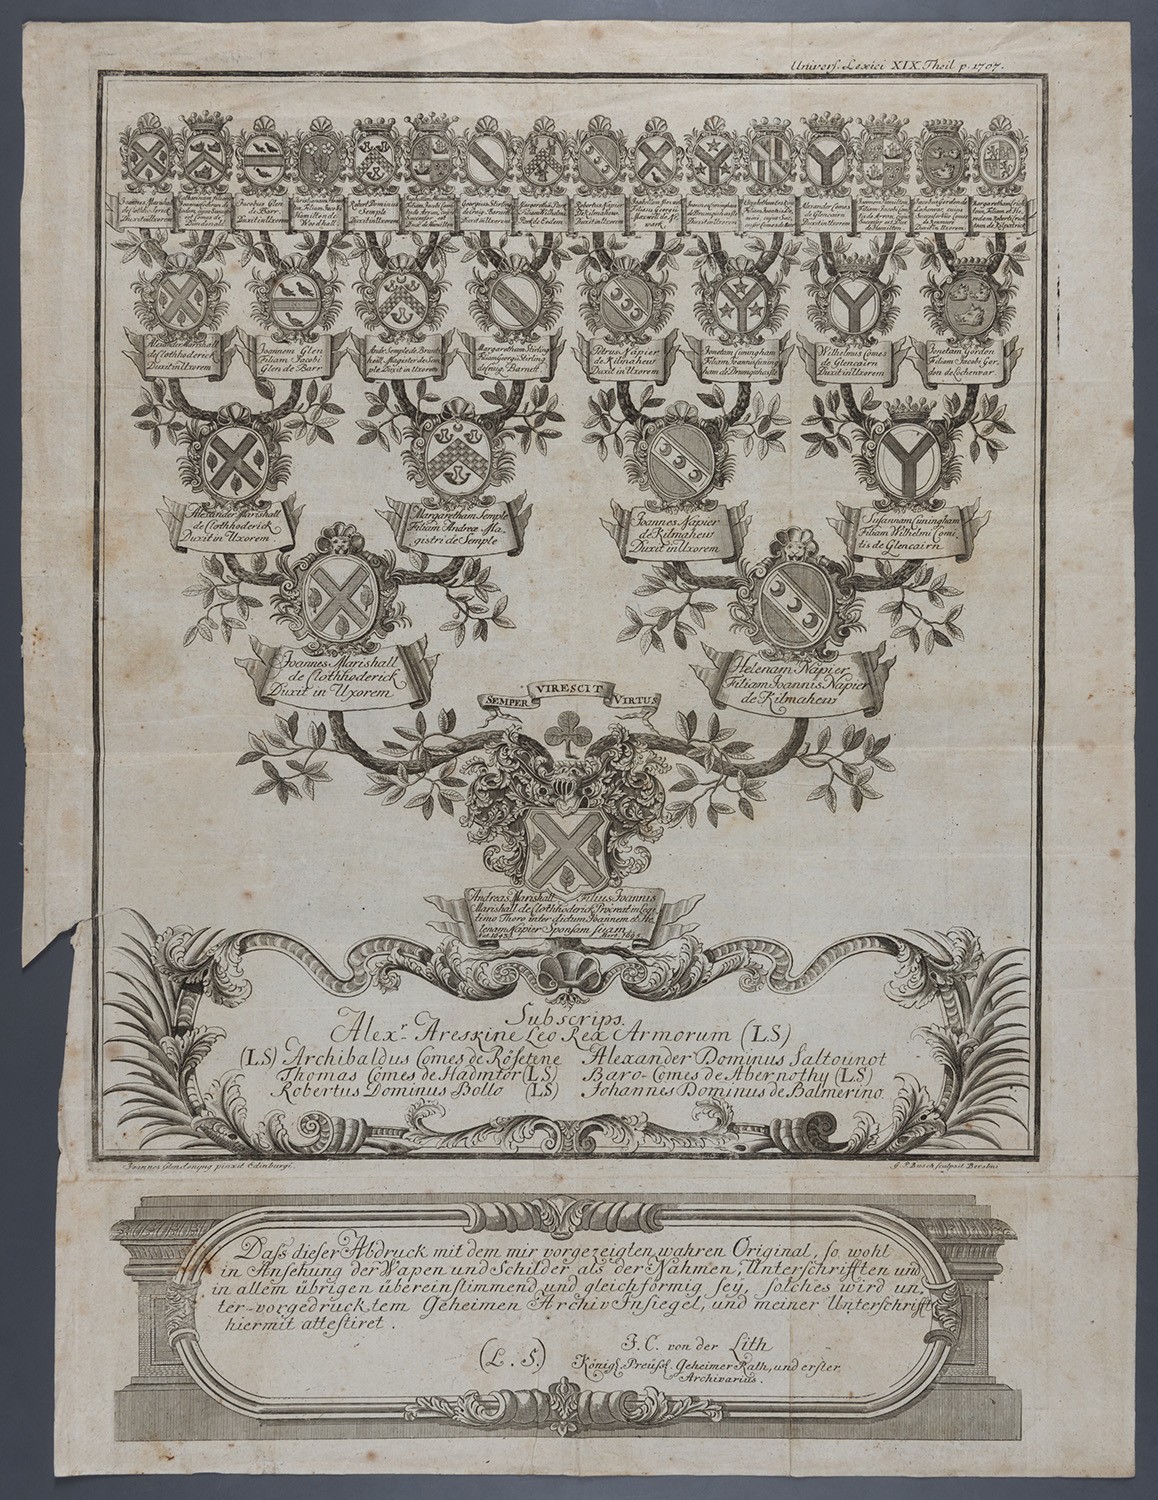 Univers. Lexici XIX. Theil p. 1707.
Joannes Marishal
de Clothhoderick
Duxit in Uxorem
Jacobus Glen
de Barr.
Duxit in Uxorem
Hamilton de
Woodhall
Robert Dominus
Semple
Duxit in Uxorem
Georgius Stirling
de Craig. Barnett
Duxit in Uxorem
Robertus Napier
De Kilmahew
Duxit in Uxorem
Duxit in Uxorem
Alexander Comes
de Glencairn
Duxit in Uxorem
de Hamilton
Duxit in Uxorem
Alexander Marishall
de Clothhoderick
Duxit in Uxorem
Joannem Glen
Filiam Jacobi
Glen de Barr
Andr. Semple de Brunts
hall, Magister de Sem
ple Duxit in Uxorem
Margaretham Stirling
Filiam Georgii Stirling
de Craig Barnett
Petrus Napier
de Kilmaheus
Duxit in Uxorem
Jonetam Cuningham
Filiam Joannis Cuning
ham de Drumquhasle
Wilhelmus Comes
de Glencairn
Duxit in Uxorem
Jonetam Gordon
Filiam Jacobi Gor
don de Lochenvar
Alexander Marishall
de Clothhoderick
Duxit in Uxorem
Margaretham Semple
Filiam Andreæ Ma
gistri de Semple
Joannes Napier
de Kilmahew
Duxit in Uxorem
Susannam Cuningham
Filiam Wilhelmi Comi
tis de Glencairn
Joannes Marishall
de Clothhoderick
Duxit in Uxorem
Helenam Napier
Filiam Joannis Napier
de Kilmahew
SEMPER VIRESCIT VIRTUS
Andreas Marishall Filius Joannis
Marishall de Clothhoderick Procreat in Legi
timo Thoro inter dictum Joannem et He
lenam Napier Sponsam suam
Subscrips.
Alex.r Areskine Leo Rex Armorum (LS)
(LS) Archibaldus Comes de Rösetene Alexander Dominus Saltounot
Thomas Comes de Hadintor (LS) Baro-Comes de Abernothy (LS)
Robertus Dominus Bollo (LS) Johannes Dominus de Balmerino.
Joannes Glendonyng pinxit Edinburgi.
G. P. Busch sculpsit Berolini
Dass dieser Abdruck mit dem mir vorgezeigten wahren Original, so wohl
in Ansehung der Wapen und Schilder als der Nahmen, Unterschrifften und
in allem übrigen übereinstimmend und gleichförmig sey, solches wird un„
ter-vorgedrucktem Geheimen Archiv Insiegel, und meiner Unterschrifft
hiermit attestiret.
(L. S.) J. C. von der Lith
Königl. Preussl. Geheimer Rath, und erster
Archivarius.